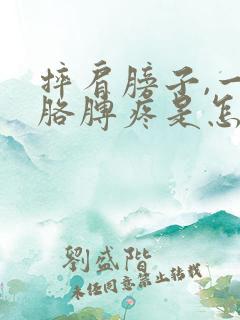 摔肩膀子,一
胳膊疼是怎
劉盛階
未经同意禁止转载